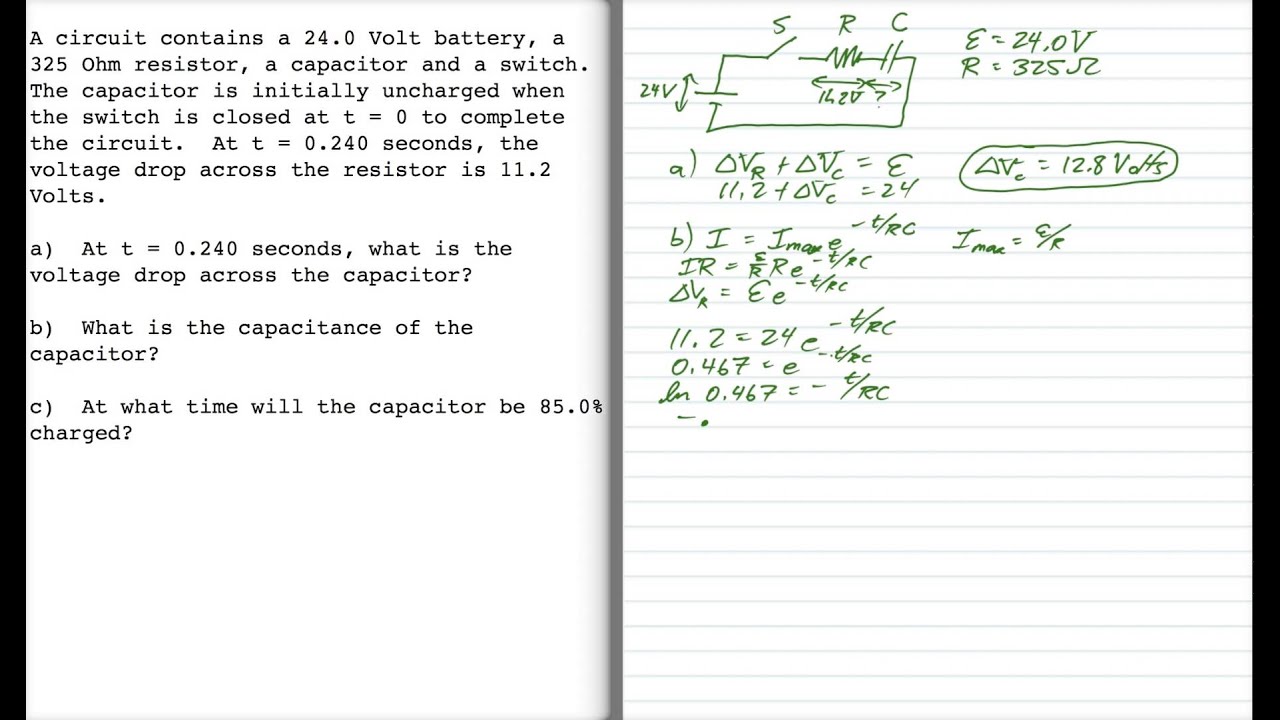 A circuit contains a 24.0 Volt battery, a
325 Ohm resistor, a capacitor and a switch.
The capacitor is initially uncharged when
the switch is closed at t = 0 to complete
the circuit. At t = 0.240 seconds, the
voltage drop across the resistor is 11.2
Volts.
a) At t = 0.240 seconds, what is the
voltage drop across the capacitor?
b) What is the capacitance of the
capacitor?
c) At what time will the capacitor be 85.0%
charged?
S R C
24V
11.2V ?
ℰ = 24.0V
R = 325Ω
a) ΔV_R + ΔV_C = ℰ
11.2 + ΔV_C = 24
ΔV_C = 12.8 Volts
b) I = I_max e^-t/RC
I_max = ℰ/R
IR = ℰ/R R e^-t/RC
ΔV_R = ℰ e^-t/RC
11.2 = 24 e^-t/RC
0.467 = e^-t/RC
ln 0.467 = - t/RC
- .